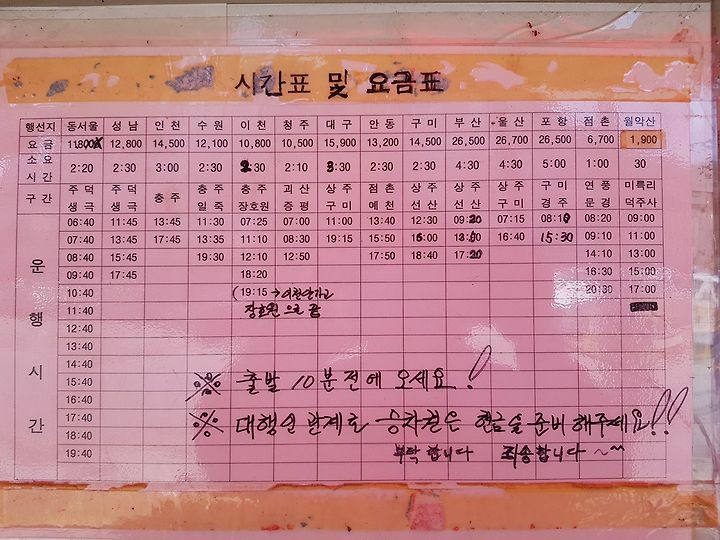 시간표 및 요금표
행선지 동서울 성남 인천 수원 이천 청주 대구 안동 구미 부산 울산 포항 점촌 월악산
요금 12,800 14,500 12,100 10,800 10,500 15,900 13,200 14,500 26,500 26,700 26,500 6,700 1,900
소요시간 2:20 2:30 3:00 2:30 2:30 2:10 3:30 2:30 2:30 4:30 4:30 5:00 1:00 30
구간 주덕 생극 주덕 생극 충주 충주 일죽 충주 장호원 괴산 증평 상주 구미 점촌 예천 상주 선산 상주 선산 상주 구미 구미 경주 연풍 문경 미륵리 덕주사
운행시간
06:40 11:45 13:45 11:30 07:25 07:00 11:00 13:40 12:30 09:20 07:15 08:20 09:00
07:40 13:45 17:45 13:35 11:10 08:30 19:15 15:50 16:40 15:30 09:10 11:00
08:40 15:45 19:30 12:10 12:50 17:50 18:40 17:20 14:10 13:00
09:40 17:45 18:20 16:30 15:00
10:40 (19:15 → 이천안가고 20:30 17:00
11:40 장호원으로 감
12:40
13:40
14:40
15:40 ※ 출발 10분전에 오세요!
16:40
17:40 ※ 대행신 관계로 승차권은 현금을 준비해주세요!!
18:40
19:40 부탁합니다 죄송합니다 ~^^